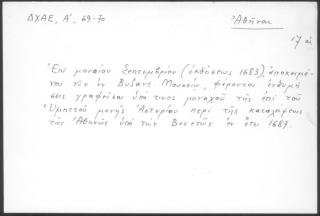 ΔΧΑΕ, Α', 69-70
Ἀθῆναι
17 αἰ
Ἐπὶ μηναίου Σεπτεμβρίου (ἐκδόσεως 1683), ἀποκειμέ-
νου νῦν ἐν Βυζαντ. Μουσείῳ, φέρονται ἐνθυμή
σεις γραφεῖσαι ὑπό τινος μοναχοῦ τῆς ἐπὶ τοῦ
Ὑμηττοῦ μονῆς Ἀστερίου περὶ τῆς καταλήψεως
τῶν Ἀθηνῶν ὑπὸ τῶν Βενετῶν ἐν ἔτει 1687.